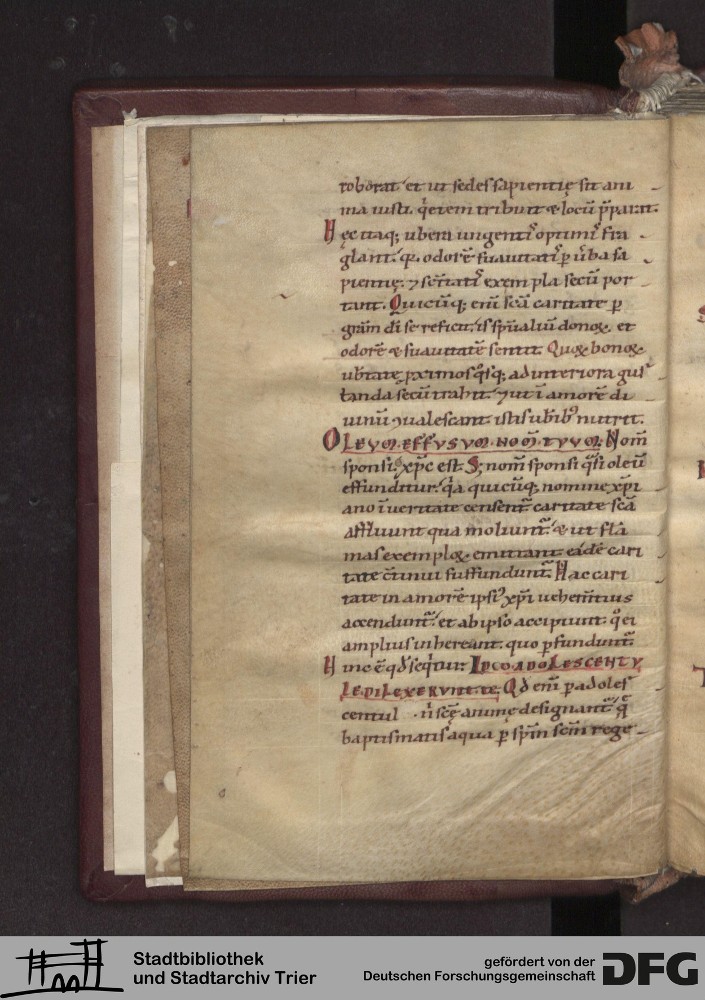 roborat et ut sedes sapientię sit ani
ma iusti. q̄etem tribuit & locū p̄parat.
Hęc itaq; ubera ungentis optimis fra
glant. q. odorē suauitatis p uerba sa
pientię. ⁊ exempla secū por
tant. Quicūq; eni scā caritate p
grām di se reficit. is sp̄ualiū donoꝝ. et
odorē & suauitatē sentit. Quoꝝ bonoꝝ
ubtatē pximos q̄sq; ad interiora gus
tanda secū trahit. ⁊ ut ī amorē di
uinū ualescant. istis uberib; nutrit.
OLEUM EFFUSUM NOM̄ TUUM. Nom̄
sponsi. xp̄c est. S; nom̄ sponsi q̄si oleū
effunditur. q̄a quicūq; nomine xp̄i
ano ī ueritate censent̄. caritate scā
affluunt qua moliunt̄. & ut flā
mas exemploꝝ emittant. eadē cari
tate c̄tinui suffundunt̄. Hac cari
tate in amorē ipsi xp̄i uehem̄tius
accendunt̄. et ab ipso accipiunt. q̄ ei
amplius inhereant. quo pfundunt̄.
Hinc ē qd̄ seq̄tur. IDEO ADOLESCENTU
LE DILEXERUNT TE. Qd̄ eni p adoles
centul n̄ scę animę designant̄. q̄
baptismatis aqua p sp̄m scm̄ rege
Stadtbibliothek
und Stadtarchiv Trier
gefördert von der
Deutschen Forschungsgemeinschaft
DFG